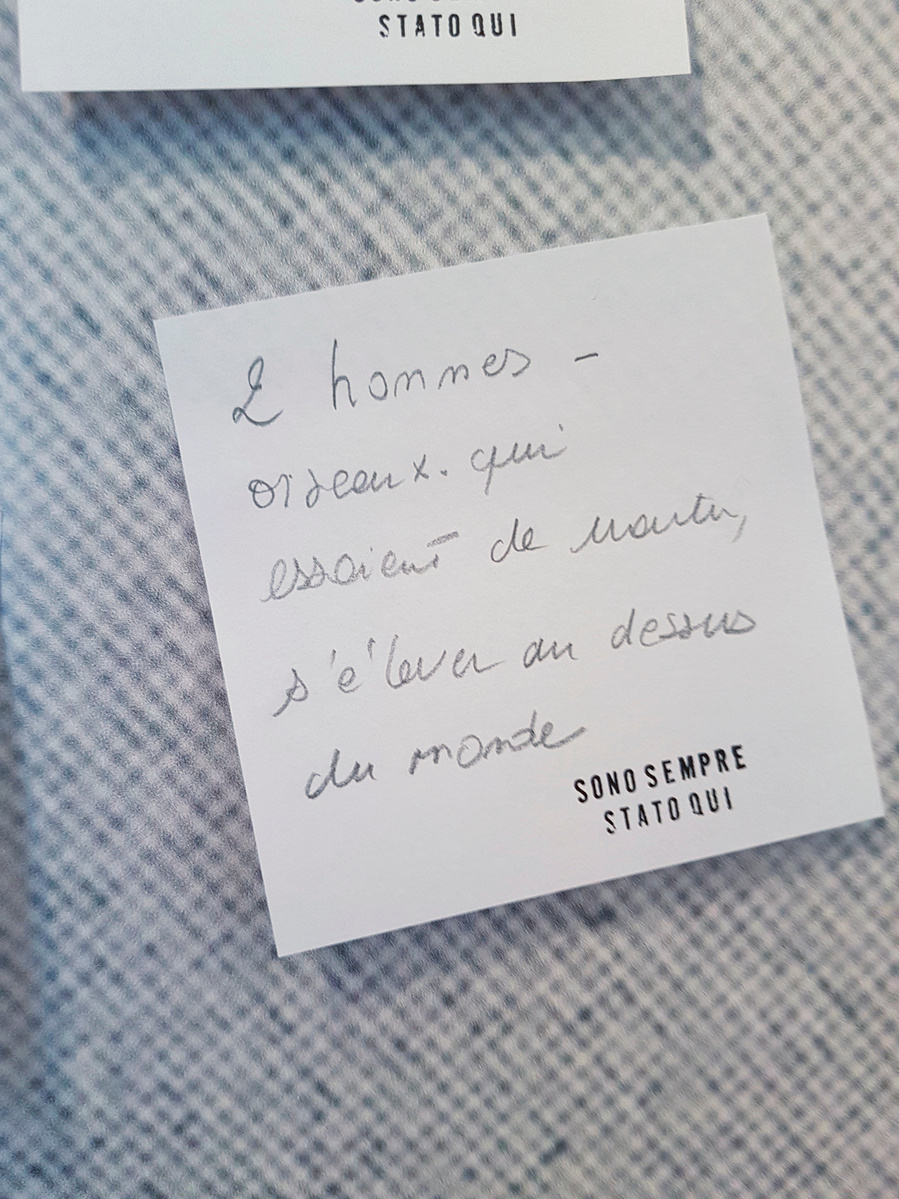 STATO QUI
2 hommes -
oiseaux. qui
essaient de monter,
s'élever au dessus
du monde
SONO SEMPRE
STATO QUI